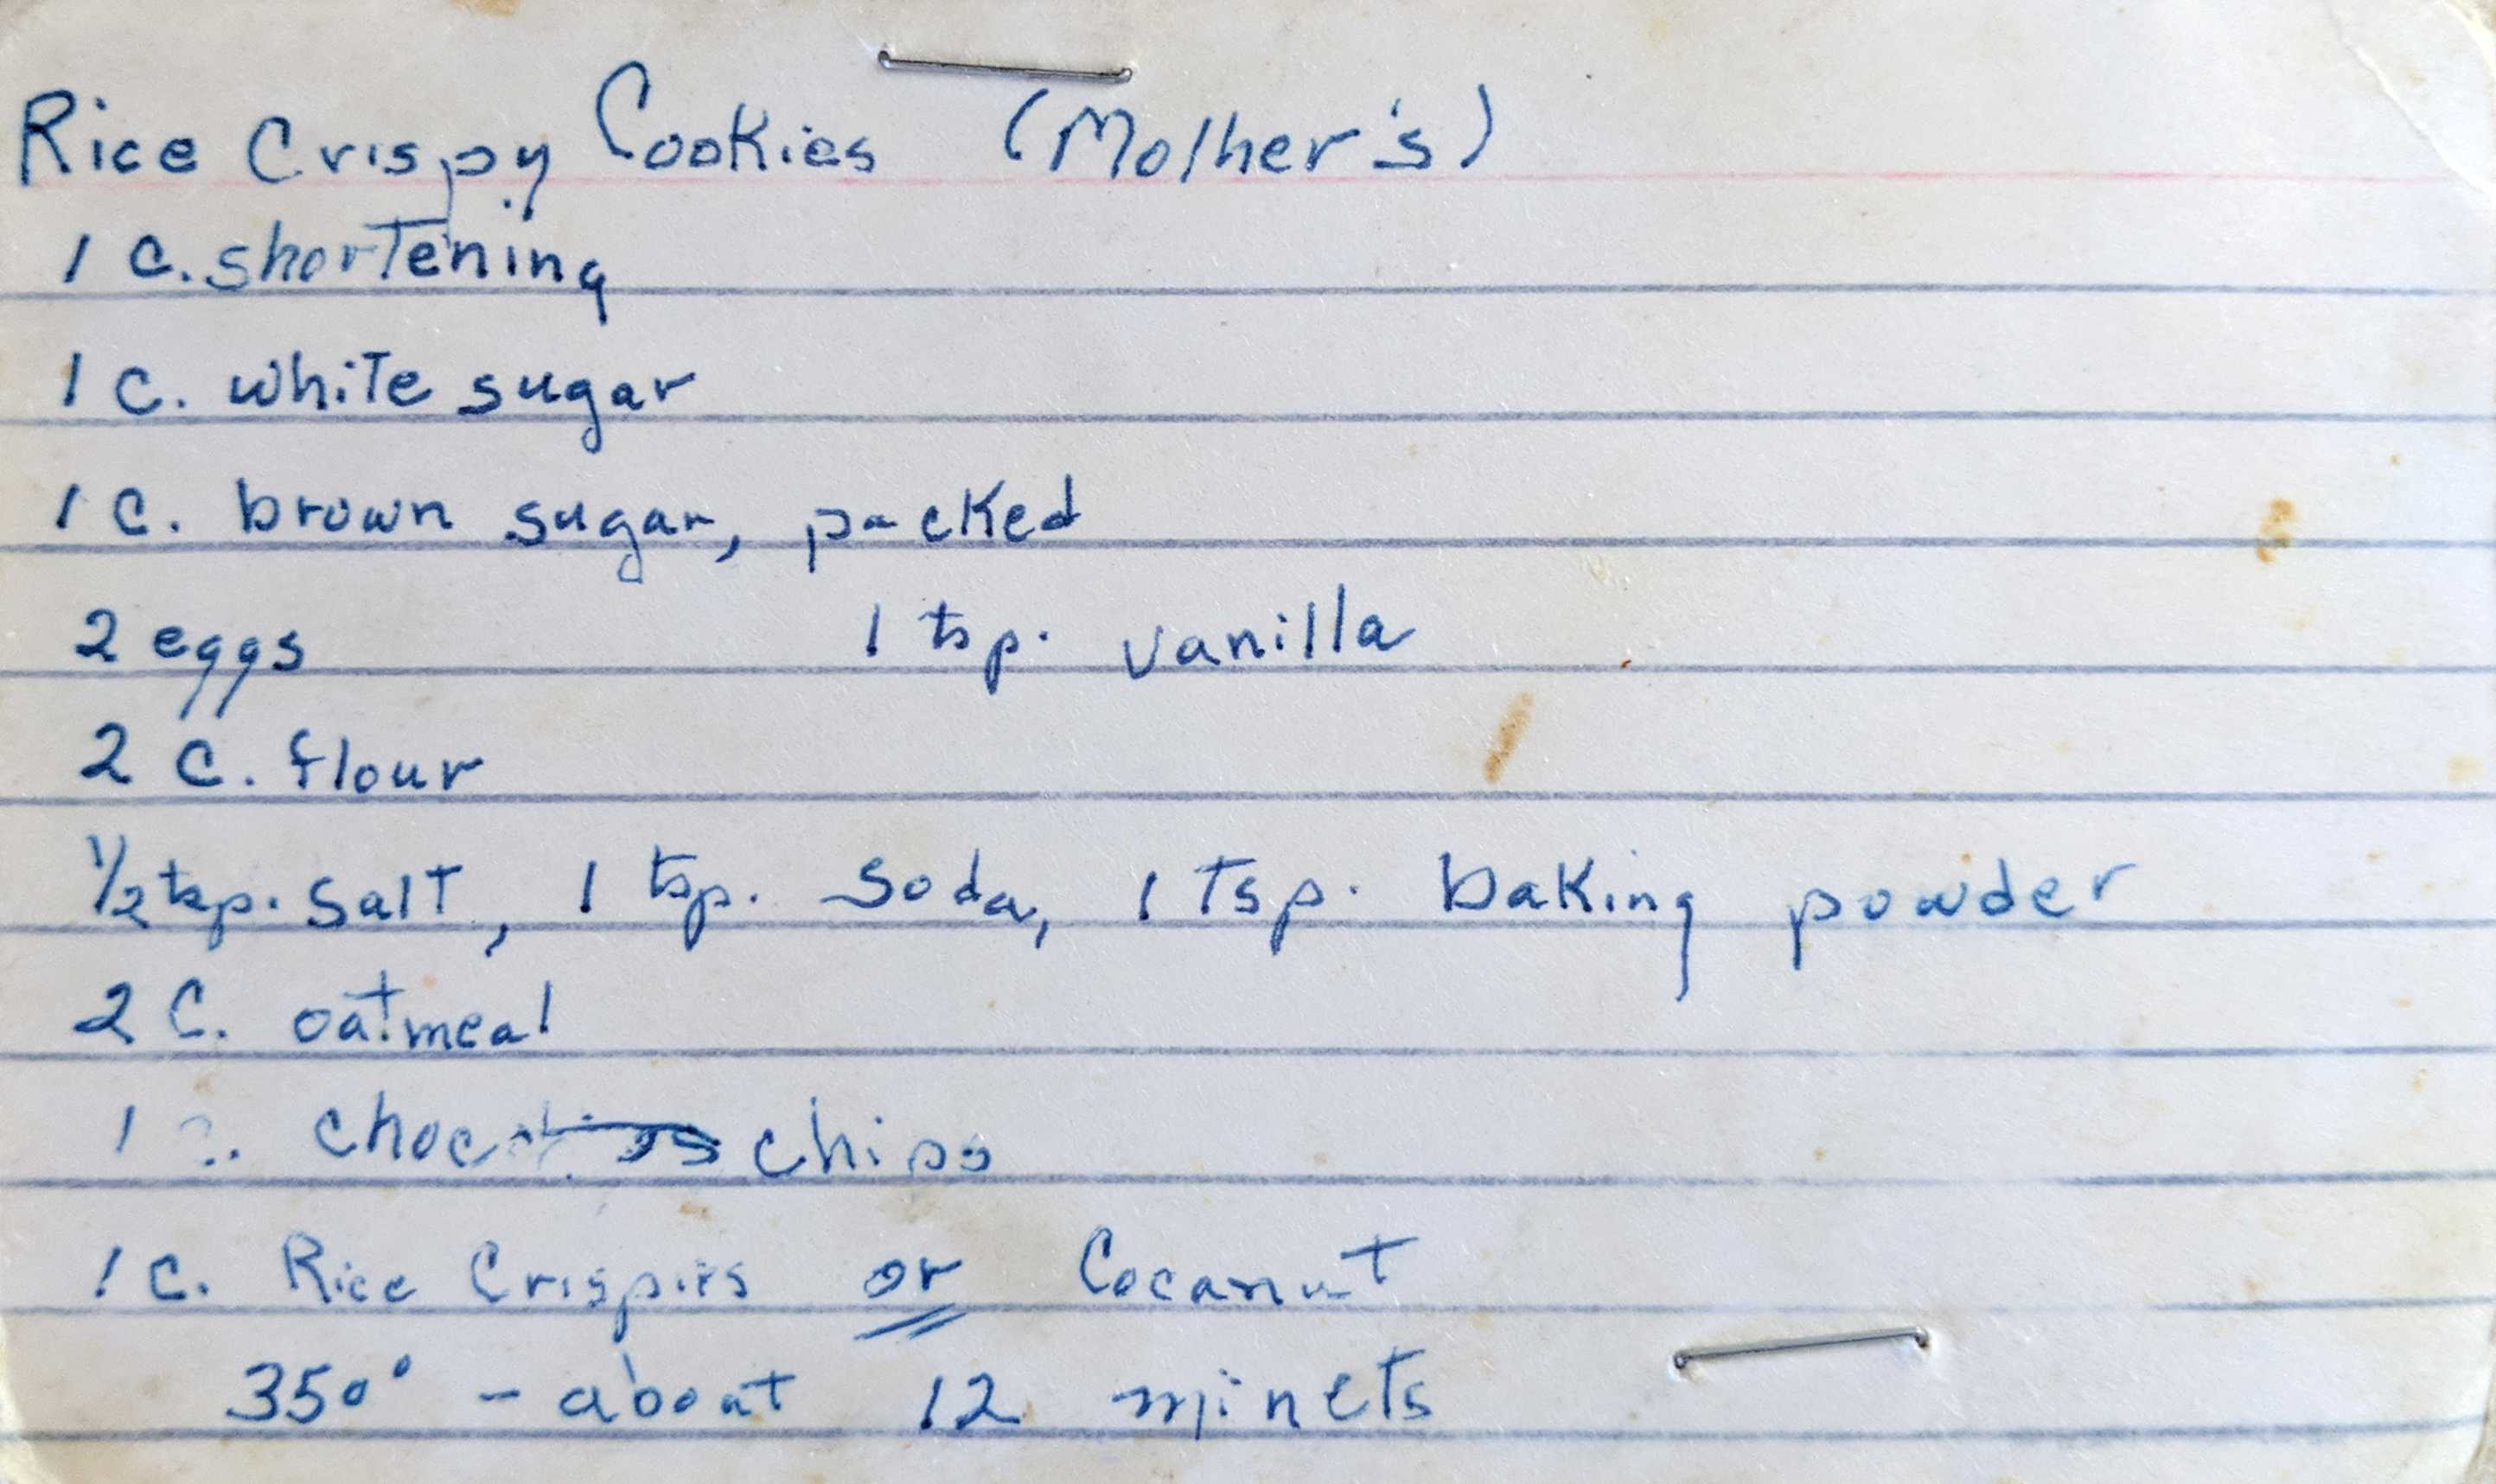 Rice Crispy Cookies (Mother's)
1 C. shortening
1 C. white sugar
1 C. brown sugar, packed
2 eggs 1 tsp. vanilla
2 C. flour
1/2 tsp. salt, 1 tsp. soda, 1 Tsp. baking powder
2 C. oatmeal
1 C. choc chips
1 C. Rice Crispies or Cocanut
350° - about 12 minets